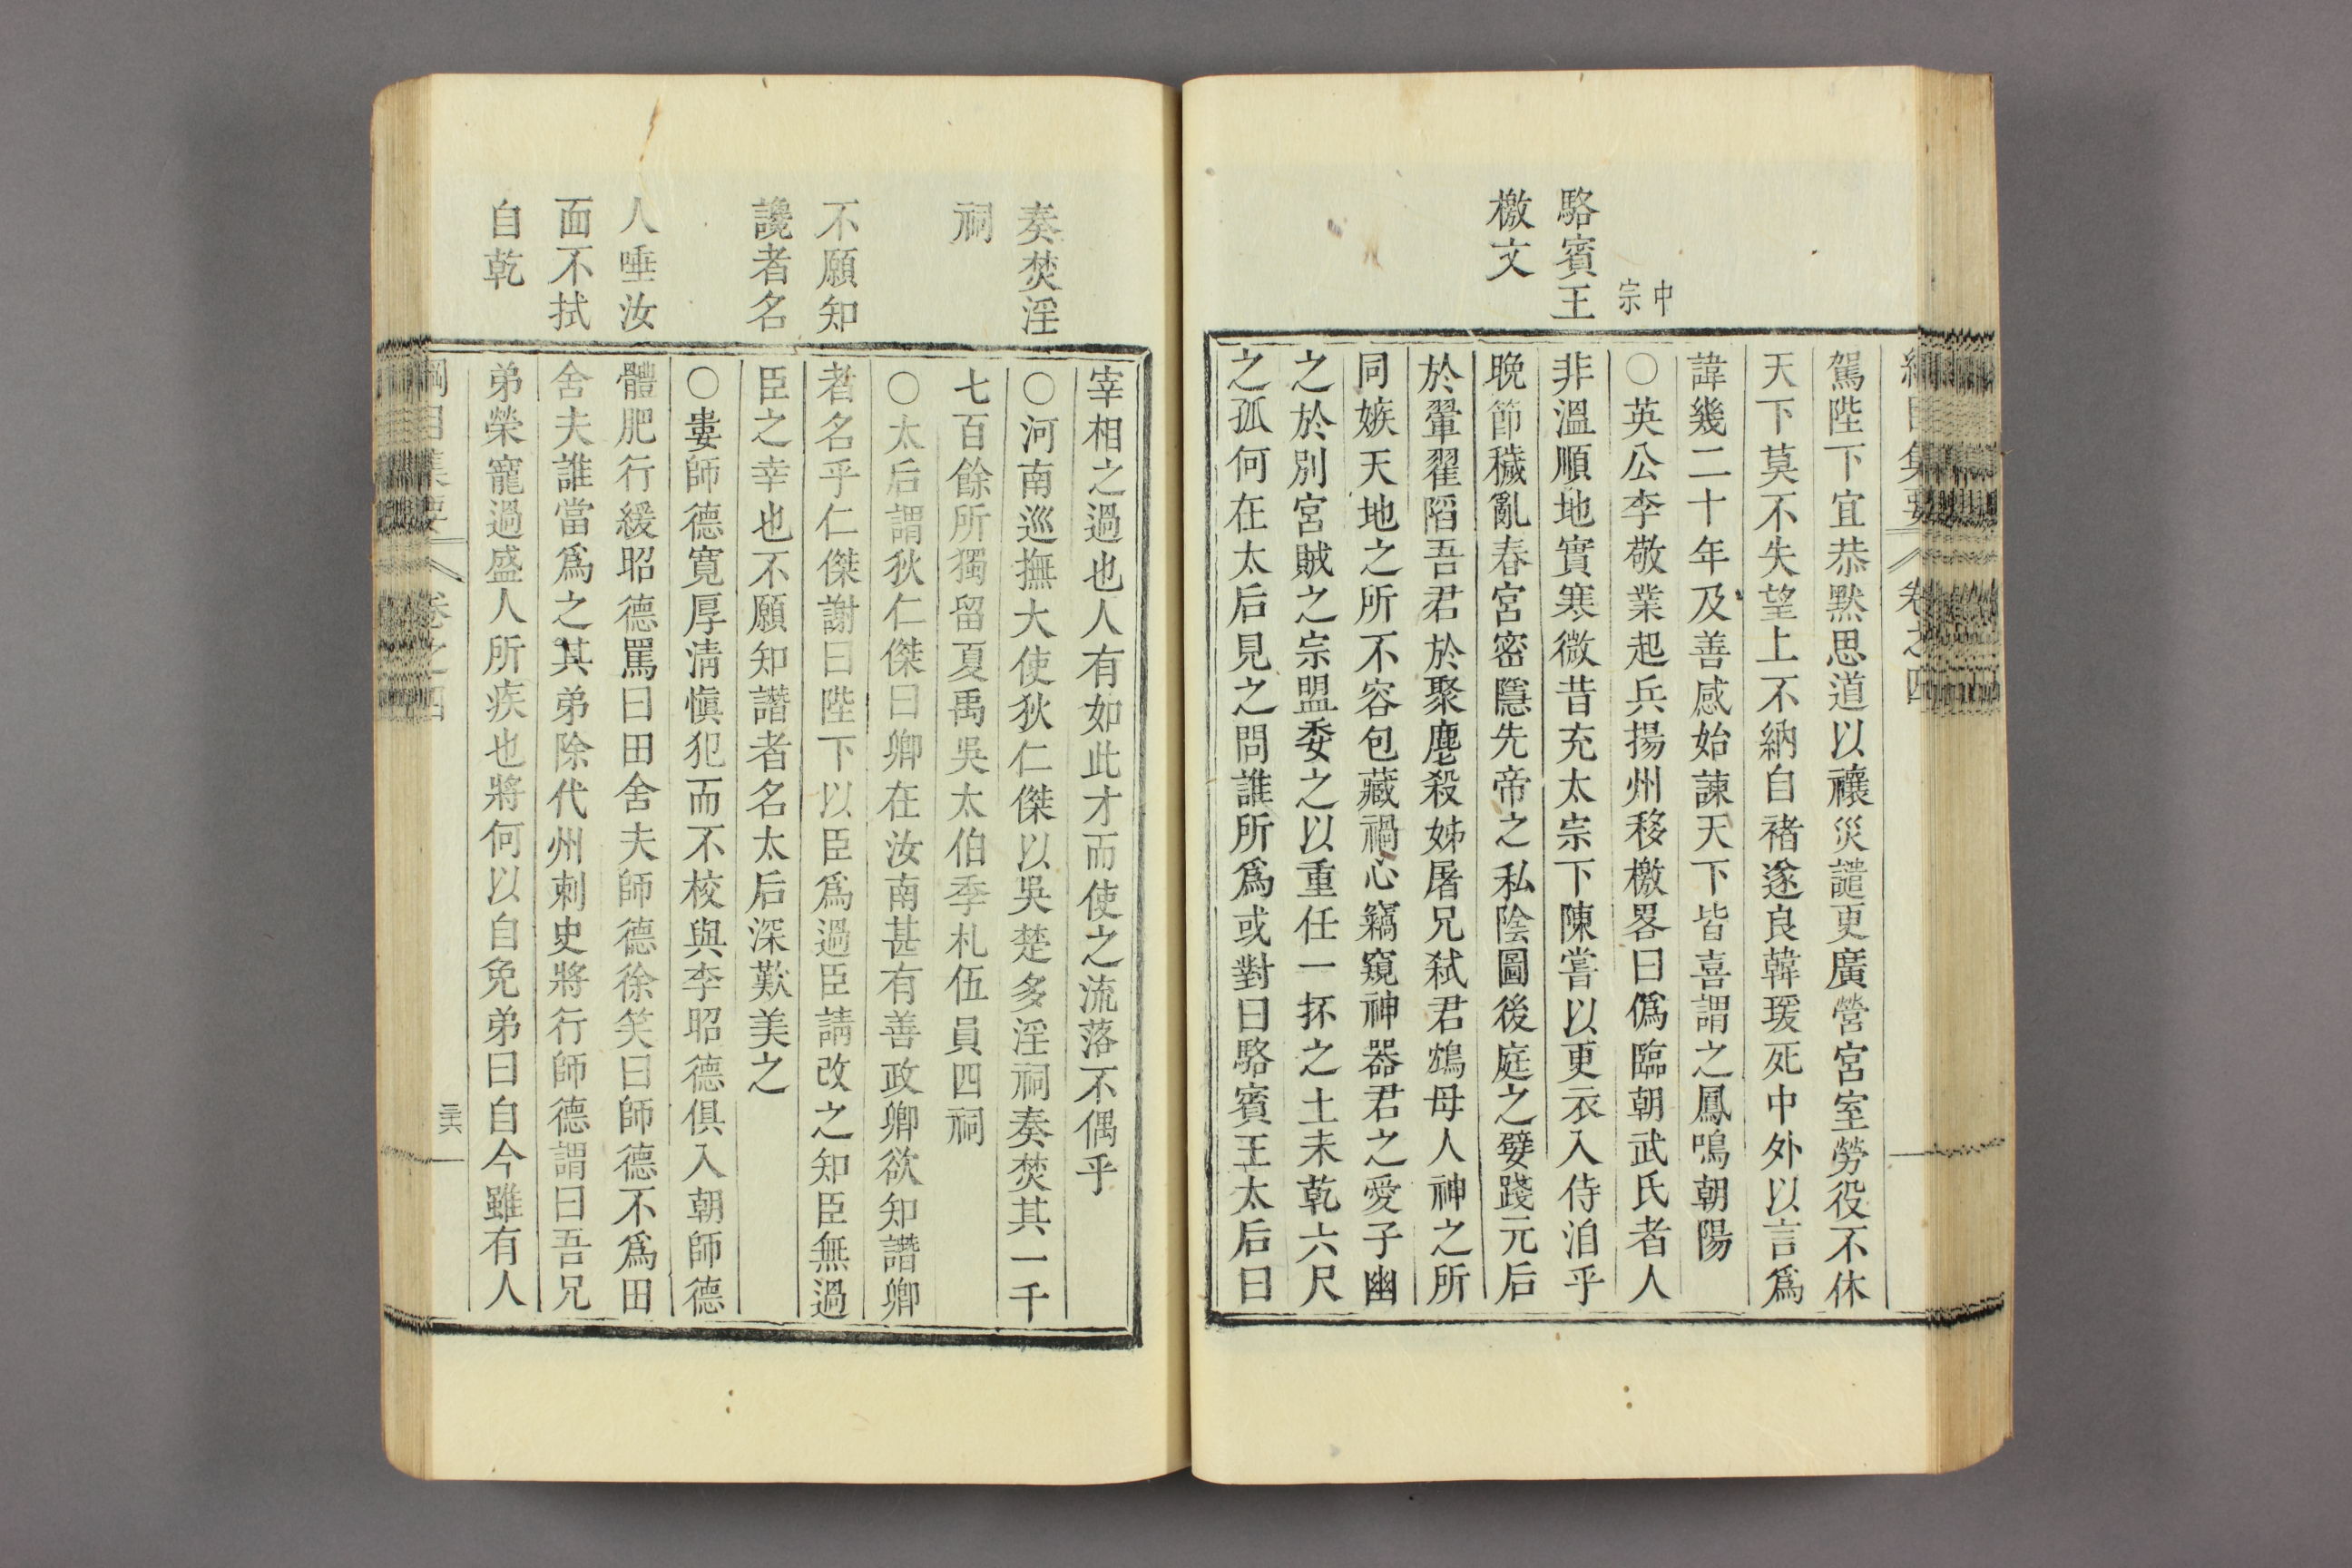 綱目集要 卷之四
駕陛下宜恭默思道以禳災譴更廣營宮室勞役不休
天下莫不失望上不納自褚遂良韓瑗死中外以言爲
諱幾二十年及善感始諫天下皆喜謂之鳳鳴朝陽
中宗
〇英公李敬業起兵揚州移檄畧曰僞臨朝武氏者人
駱賓王
檄文
非溫順地實寒微昔充太宗下陳嘗以更衣入侍洎乎
晚節穢亂春宮密隱先帝之私陰圖後庭之嬖踐元后
於翬翟陷吾君於聚麀殺姊屠兄弒君鴆母人神之所
同嫉天地之所不容包藏禍心竊窺神器君之愛子幽
之於別宮賊之宗盟委之以重任一抔之土未乾六尺
之孤何在太后見之問誰所爲或對曰駱賓王太后曰
宰相之過也人有如此才而使之流落不偶乎
奏焚淫
祠
〇河南巡撫大使狄仁傑以吳楚多淫祠奏焚其一千
七百餘所獨留夏禹吳太伯季札伍員四祠
不願知
讒者名
〇太后謂狄仁傑曰卿在汝南甚有善政卿欲知譖卿
者名乎仁傑謝曰陛下以臣爲過臣請改之知臣無過
臣之幸也不願知譖者名太后深歎美之
人唾汝
面不拭
自乾
〇婁師德寬厚淸愼犯而不校與李昭德俱入朝師德
體肥行緩昭德罵曰田舍夫師德徐笑曰師德不爲田
舍夫誰當爲之其弟除代州刺史將行師德謂曰吾兄
弟榮寵過盛人所疾也將何以自免弟曰自今雖有人
綱目集要 卷之四 三六